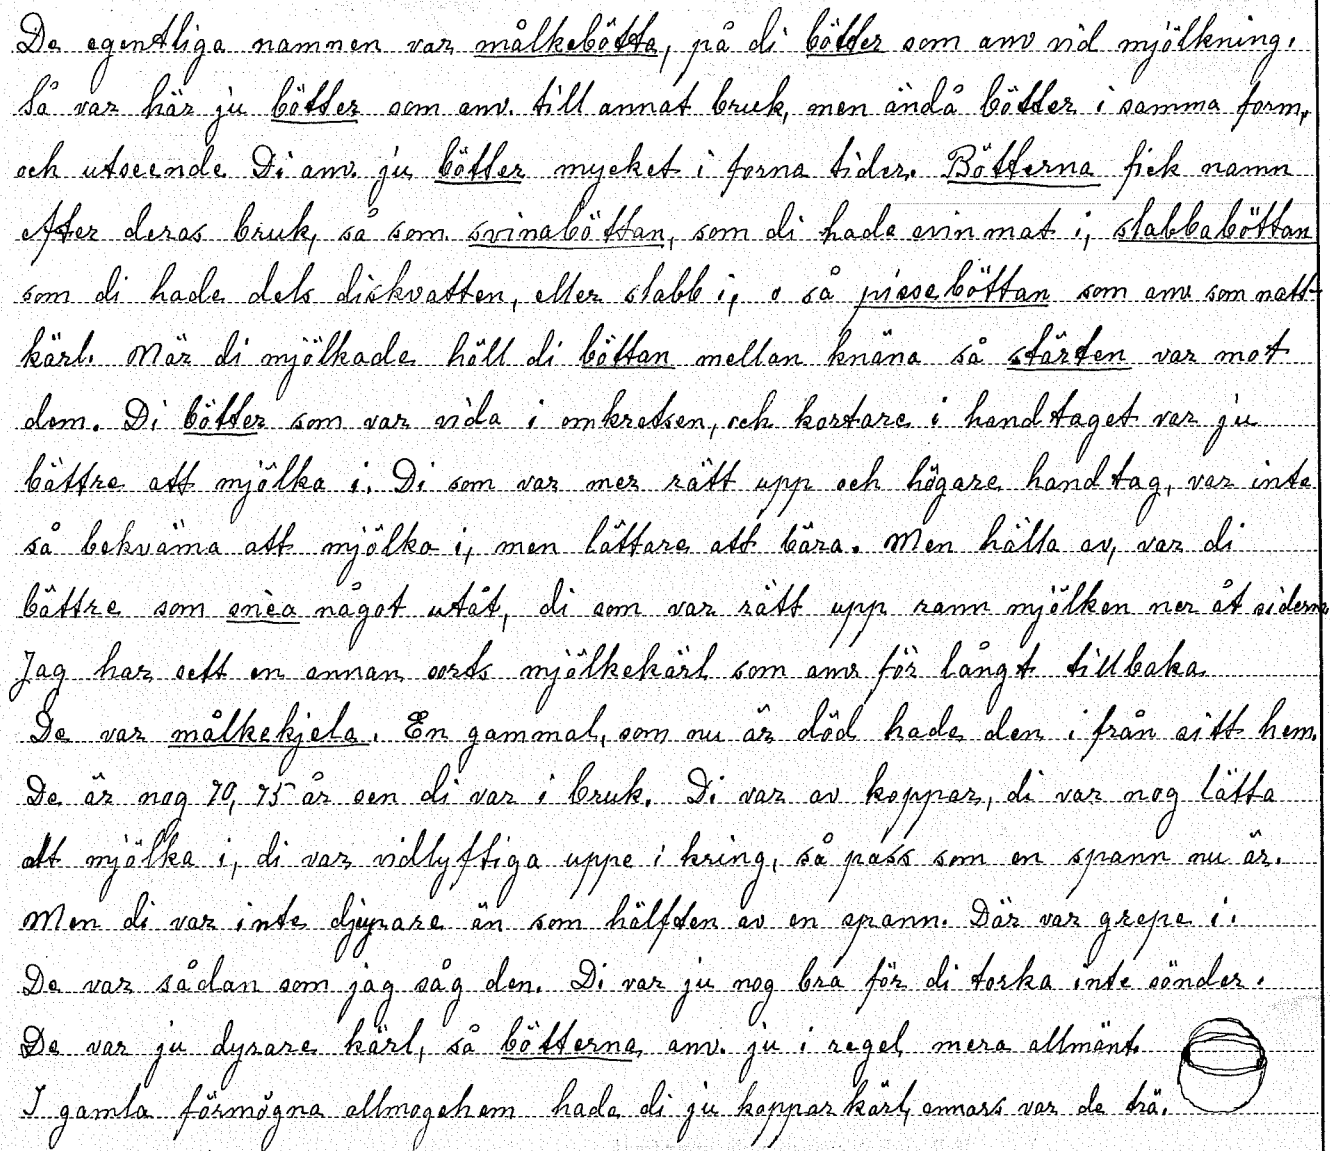 De egentliga namnen var målkebötta, på di bötter som anv vid mjölkning.
Så var här ju bötter som anv. till annat bruk, men ändå bötter i samma form,
och utseende. Di anv. ju bötter mycket i forna tider. Bötterna fick namn
efter deras bruk, så som svinaböttan, som di hade svinmat i, slabbaböttan
som di hade dels diskvatten, eller slabb i, o så pisseböttan som anv som natt-
kärl. När di mjölkade höll di böttan mellan knäna så stärten var mot
dem. Di bötter som var vida i omkretsen, och kortare i handtaget var ju
bättre att mjölka i. Di som var mer rätt upp och högare handtag, var inte
så bekväma att mjölka i, men lättare att bära. Men hälla av, var di
bättre som snea något utåt, di som var rätt upp rann mjölken ner åt siderna
Jag har sett en annan sorts mjölkekärl som anv för långt tillbaka
De var målkekjela. En gammal, som nu är död hade den i från sitt hem.
De är nog 70, 75 år sen di var i bruk. Di var av koppar, di var nog lätta
att mjölka i, di var vidlyftiga uppe i kring, så pass som en spann nu är.
Men di var inte djupare än som hälften av en spann. Där var grepe i.
De var sådan som jag såg den. Di var ju nog bra för di torka inte sönder.
De var ju dyrare kärl, så bötterna anv. ju i regel mera allmänt.
I gamla förmögna allmogehem hade di ju kopparkärl, annars var de trä.